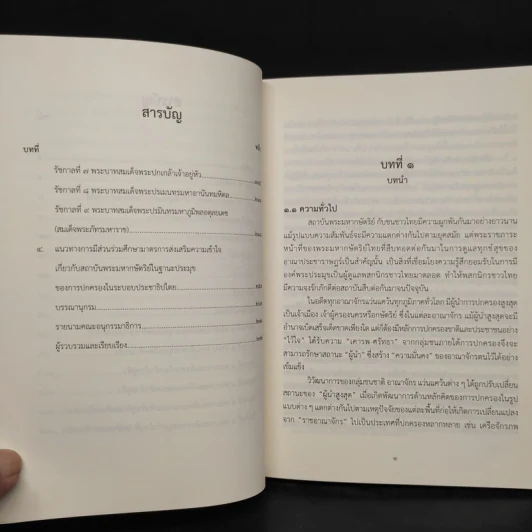 สารบัญ
บทที่
รัชกาลที่ ๗ พระบาทสมเด็จพระปกเกล้าเจ้าอยู่หัว
รัชกาลที่ ๘ พระบาทสมเด็จพระปรเมนทรมหาอานันทมหิดล
รัชกาลที่ ๙ พระบาทสมเด็จพระปรมินทรมหาภูมิพลอดุลยเดช
(สมเด็จพระภัทรมหาราช)
๔. แนวทางการมีส่วนร่วมศึกษามาตรการส่งเสริมความเข้าใจ
เกี่ยวกับสถาบันพระมหากษัตริย์ในฐานะประมุข
ของการปกครองในระบอบประชาธิปไตย
บรรณานุกรม
รายนามคณะอนุกรรมาธิการ
ผู้รวบรวมและเรียบเรียง
บทที่ ๑
บทนำ
๑.๑ ความทั่วไป
สถาบันพระมหากษัตริย์ กับชนชาวไทยมีความผูกพันกันมาอย่างยาวนาน
แม้รูปแบบความสัมพันธ์จะมีความแตกต่างกันไปตามยุคสมัย แต่พระราชภาระ
หน้าที่ของพระมหากษัตริย์ไทยที่สืบทอดต่อกันมาในการดูแลทุกข์สุขของ
อาณาประชาราษฎร์เป็นสำคัญนั้น เป็นสิ่งที่เชื่อมโยงความรู้สึกยอมรับในการมี
องค์พระประมุขเป็นผู้ดูแลพสกนิกรชาวไทยมาตลอด ทำให้พสกนิกรชาวไทย
มีความจงรักภักดีต่อสถาบันสืบต่อกันมาจนปัจจุบัน
ในอดีตทุกอาณาจักรแว่นแคว้นทุกภูมิภาคทั่วโลก มีผู้นำการปกครองสูงสุด
เป็นเจ้าเมือง เจ้าผู้ครองนครหรือกษัตริย์ ซึ่งในแต่ละอาณาจักร แม้ผู้นำสูงสุดจะมี
อำนาจเบ็ดเสร็จเด็ดขาดเพียงใด แต่ก็ต้องมีหลักการปกครองชาติและประชาชนอย่าง
"ไว้ใจ" ได้รับความ "เคารพ-ศรัทธา" จากกลุ่มชนภายใต้การปกครองจึงจะ
สามารถรักษาสถานะ "ผู้นำ" ซึ่งสร้าง "ความมั่นคง" ของอาณาจักรตนไว้ได้อย่าง
เข้มแข็ง
วิวัฒนาการของกลุ่มชนชาติ อาณาจักร แว่นแคว้นต่าง ๆ ได้ถูกปรับเปลี่ยน
สถานะของ "ผู้นำสูงสุด" เมื่อเกิดพัฒนาการด้านหลักคิดของการปกครองในรูป
แบบต่าง ๆ แตกต่างกันไปตามเหตุปัจจัยของแต่ละพื้นที่ก่อให้เกิดการเปลี่ยนแปลง
จาก "ราชอาณาจักร" ไปเป็นประเทศที่ปกครองหลากหลาย เช่น เครือจักรภพ